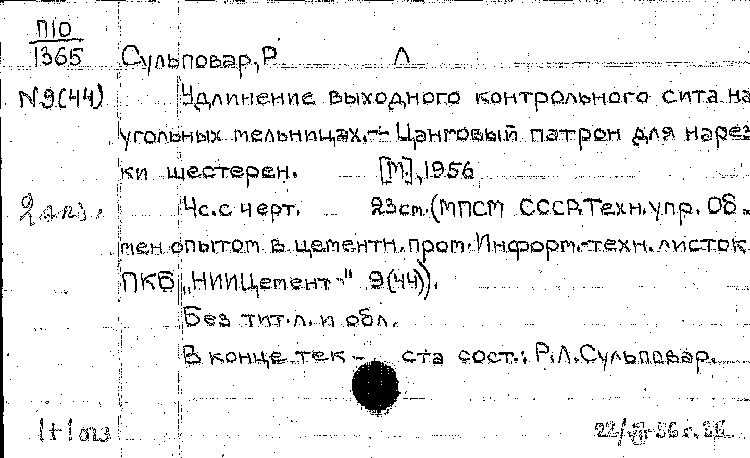 П10
1365
Сульповар, Р Л
N9(44)
Удлинение выходного контрольного сита на
угольных мельницах.- Цанговый патрон для нарез
ки шестерен. [М], 1956
2 экз.
4с. с черт. 23см. (МПСМ СССР. Техн. упр. Об-
мен опытом в цементн. пром. Информ.-техн. листок
ПКБ „НИИЦемент-" 9(44)).
Без тит. л. и обл.
В конце тек - ста сост.: Р.Л.Сульповар.
1+1 оиз
22/VIII 56 г.